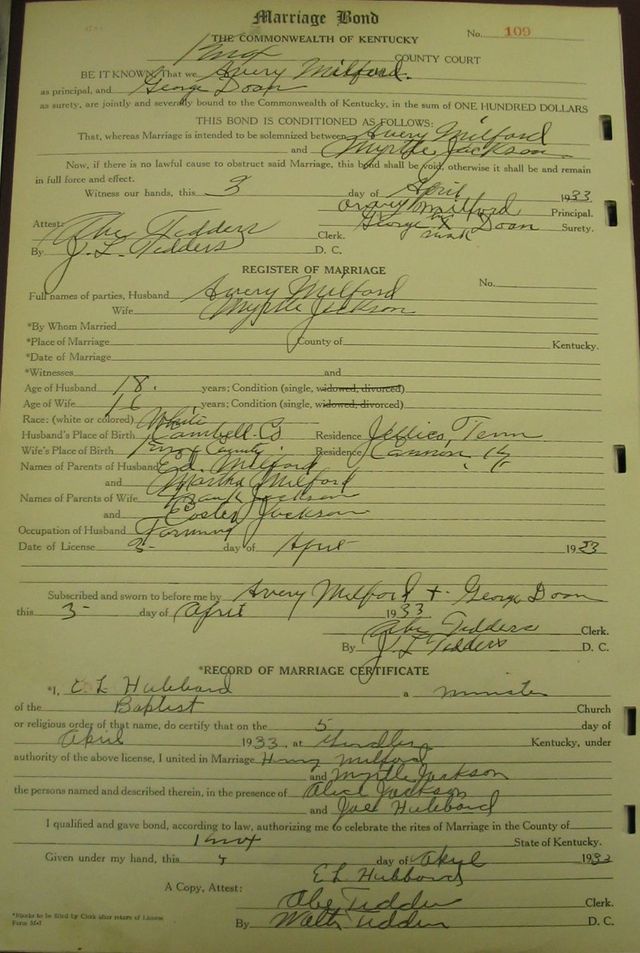 Marriage Bond
THE COMMONWEALTH OF KENTUCKY No. 109
Knox COUNTY COURT
BE IT KNOWN, That we Avery Milford.
as principal, and George Doan
as surety, are jointly and severally bound to the Commonwealth of Kentucky, in the sum of ONE HUNDRED DOLLARS
THIS BOND IS CONDITIONED AS FOLLOWS:
That, whereas Marriage is intended to be solemnized between Avery Milford
and Myrtle Jackson
Now, if there is no lawful cause to obstruct said Marriage, this bond shall be void, otherwise it shall be and remain
in full force and effect.
Witness our hands, this 3 day of April 1933
Milford Principal.
Attest: Abe Tedders Clerk. George X Doan Surety.
mark
By J. L. Tedders D. C.
REGISTER OF MARRIAGE
No.
Full names of parties, Husband Avery Milford
Wife Myrtle Jackson
*By Whom Married
*Place of Marriage County of Kentucky.
*Date of Marriage
*Witnesses and
Age of Husband 18. years; Condition (single, widowed, divorced)
Age of Wife 16 years; Condition (single, widowed, divorced)
Race: (white or colored) White
Husband's Place of Birth Cambell Co Residence Jellico, Tenn
Wife's Place of Birth Knox County Residence Cannon, Ky
Names of Parents of Husband Ed. Milford
and Martha Milford
Names of Parents of Wife Frank Jackson
and Jackson
Occupation of Husband Farming
Date of License 3 day of April 1933
Subscribed and sworn to before me by Avery Milford + George Doan
this 3 day of April 1933
Abe Tedders Clerk.
By J L Tedders D. C.
*RECORD OF MARRIAGE CERTIFICATE
*I, E L Hubbard a minister
of the Baptist Church
or religious order of that name, do certify that on the 5 day of
April 1933, at Kentucky, under
authority of the above license, I united in Marriage Milford
and Myrtle Jackson
the persons named and described therein, in the presence of Jackson
and Joe Hubbard
I qualified and gave bond, according to law, authorizing me to celebrate the rites of Marriage in the County of
Knox State of Kentucky.
Given under my hand, this day of April 1933
E L Hubbard
A Copy, Attest: Abe Tedder Clerk.
By Tedder D. C.
*Blanks to be filled by Clerk after return of License